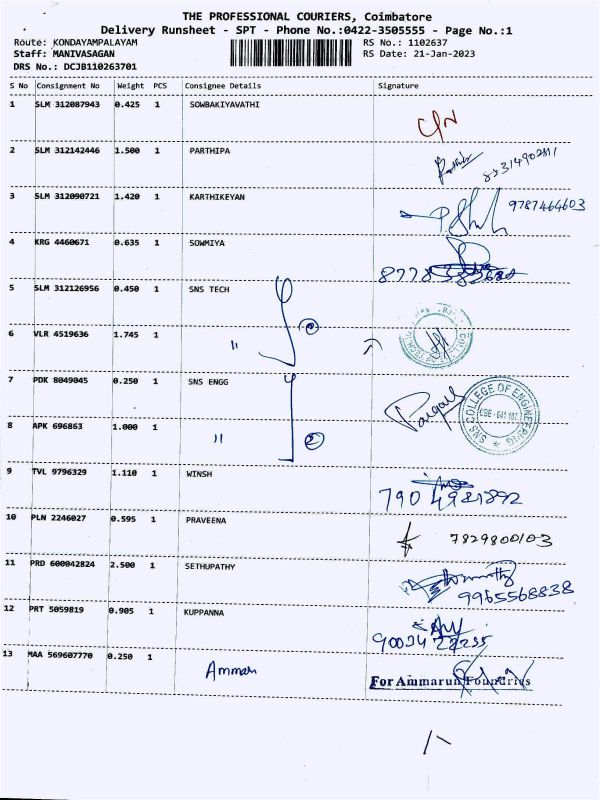 THE PROFESSIONAL COURIERS, Coimbatore
Delivery Runsheet - SPT - Phone No.:0422-3505555 - Page No.:1
Route: KONDAYAMPALAYAM RS No.: 1102637
Staff: MANIVASAGAN RS Date: 21-Jan-2023
DRS No.: DCJB110263701
S No Consignment No Weight PCS Consignee Details Signature
1 SLM 312087943 0.425 1 SOWBAKIYAVATHI
2 SLM 312142446 1.500 1 PARTHIPA
3 SLM 312090721 1.420 1 KARTHIKEYAN 9787464603
4 KRG 4460671 0.635 1 SOWMIYA
5 SLM 312126956 0.450 1 SNS TECH
6 VLR 4519636 1.745 1 "
7 PDK 8049045 0.250 1 SNS ENGG
SNS COLLEGE OF ENGINEERING
CBE - 641 107
8 APK 696863 1.000 1 " 2
9 TVL 9796329 1.110 1 WINSH
7904981892
10 PLN 2246027 0.595 1 PRAVEENA 7829800103
11 PRD 600042824 2.500 1 SETHUPATHY
9965568838
12 PRT 5059819 0.905 1 KUPPANNA
13 MAA 569607770 0.250 1 Ammar
For Ammarun Foundries